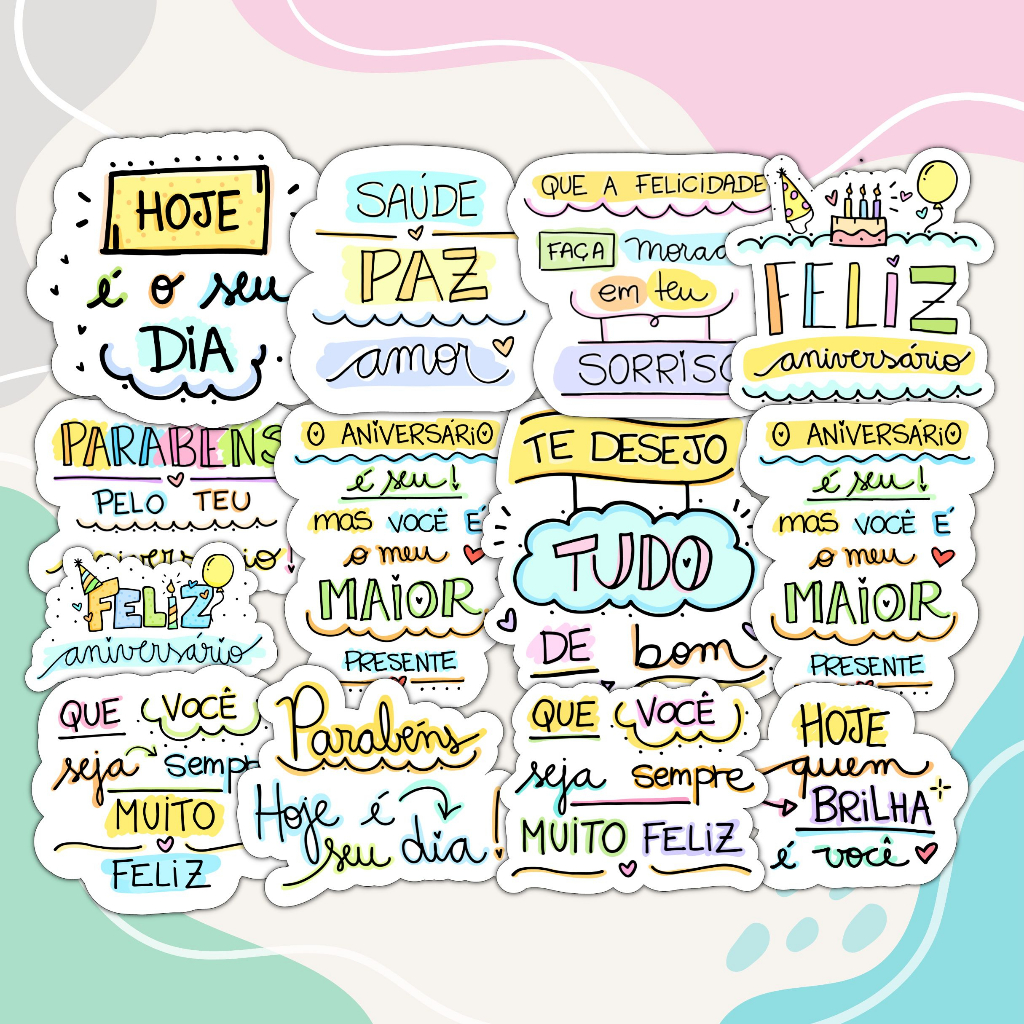 HOJE
é o seu
DiA
SAÚDE
PAZ
amor
QUE A FELICIDADE
FAÇA morad
em teu
SORRiSO
FELiZ
aniversário
PARABENS
PELO TEU
aniversário
O ANiVERSÁRiO
é seu!
mas VOCÊ É
o meu
MAiOR
PRESENTE
TE DESEJO
TUDO
DE bom
O ANiVERSÁRiO
é seu!
mas VOCÊ É
o meu
MAiOR
PRESENTE
FELiZ
aniversário
QUE VOCÊ
seja sempr
MUiTO
FELiZ
Parabéns
Hoje é
seu dia!
QUE VOCÊ
seja sempre
MUiTO FELiZ
HOJE
quem
BRiLHA
é você